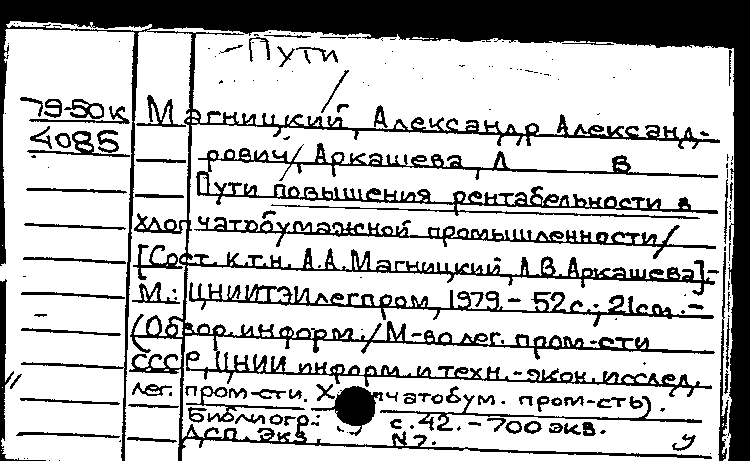 Пути
79-50к Магницкий, Александр Александ-
4085
рович, Аркашева, Л В
Пути повышения рентабельности в
хлопчатобумажной промышленности/
[Сост. к.т.н. А.А.Магницкий, Л.В.Аркашева].-
М.: ЦНИИТЭИлегпром, 1979.- 52с.; 21см.-
(Обзор. информ./М-во лег. пром-сти
СССР, ЦНИИ информ. и техн.-экон. исслед.
лег. пром-сти. Х пчатобум. пром-сть).
Библиогр.: с.42.-700 экз.
ДСП. Экз. N7. у